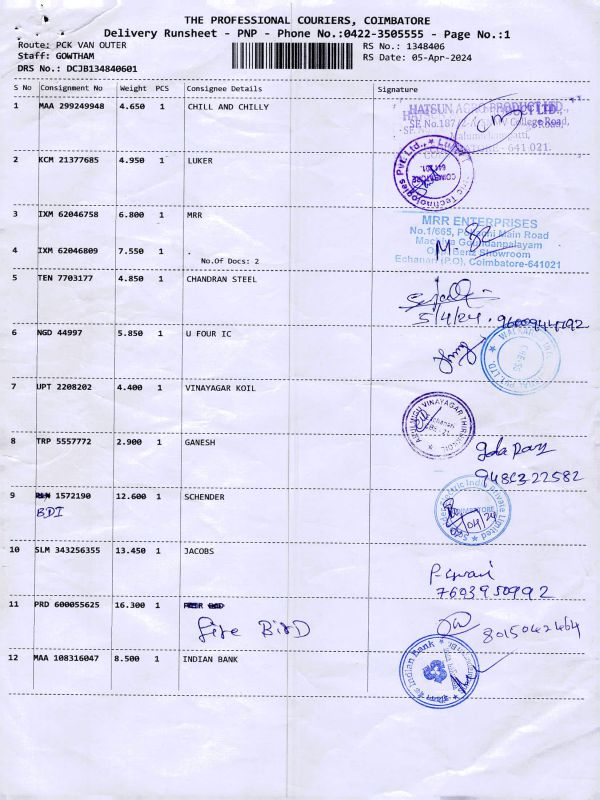 THE PROFESSIONAL COURIERS, COIMBATORE
Delivery Runsheet - PNP - Phone No.:0422-3505555 - Page No.:1
Route: PCK VAN OUTER
RS No.: 1348406
Staff: GOWTHAM
RS Date: 05-Apr-2024
DRS No.: DCJB134840601
S No Consignment No Weight PCS Consignee Details Signature
1 MAA 299249948 4.650 1 CHILL AND CHILLY
HATSUN AGRO PRODUCT LTD
SF No.187/2-A College Road,
641 021.
2 KCM 21377685 4.950 1 LUKER
Technologies Pvt Ltd.,
COIMBATORE
3 IXM 62046758 6.800 1 MRR
MRR ENTERPRISES
No.1/665, Pollachi Main Road
Goundanpalayam
Opp Benz Showroom
Echanari (P.O), Coimbatore-641021
4 IXM 62046809 7.550 1 .
No.Of Docs: 2
5 TEN 7703177 4.850 1 CHANDRAN STEEL
5/4/24
6 NGD 44997 5.850 1 U FOUR IC
7 UPT 2208202 4.400 1 VINAYAGAR KOIL
VINAYAGAR
8 TRP 5557772 2.900 1 GANESH
9 1572190 12.600 1 SCHENDER
BDI
Electric India Private Limited
COIMBATORE
04/24
10 SLM 343256355 13.450 1 JACOBS
7603950992
11 PRD 600055625 16.300 1
Fire BirD
8015042464
12 MAA 108316047 8.500 1 INDIAN BANK
Indian Bank